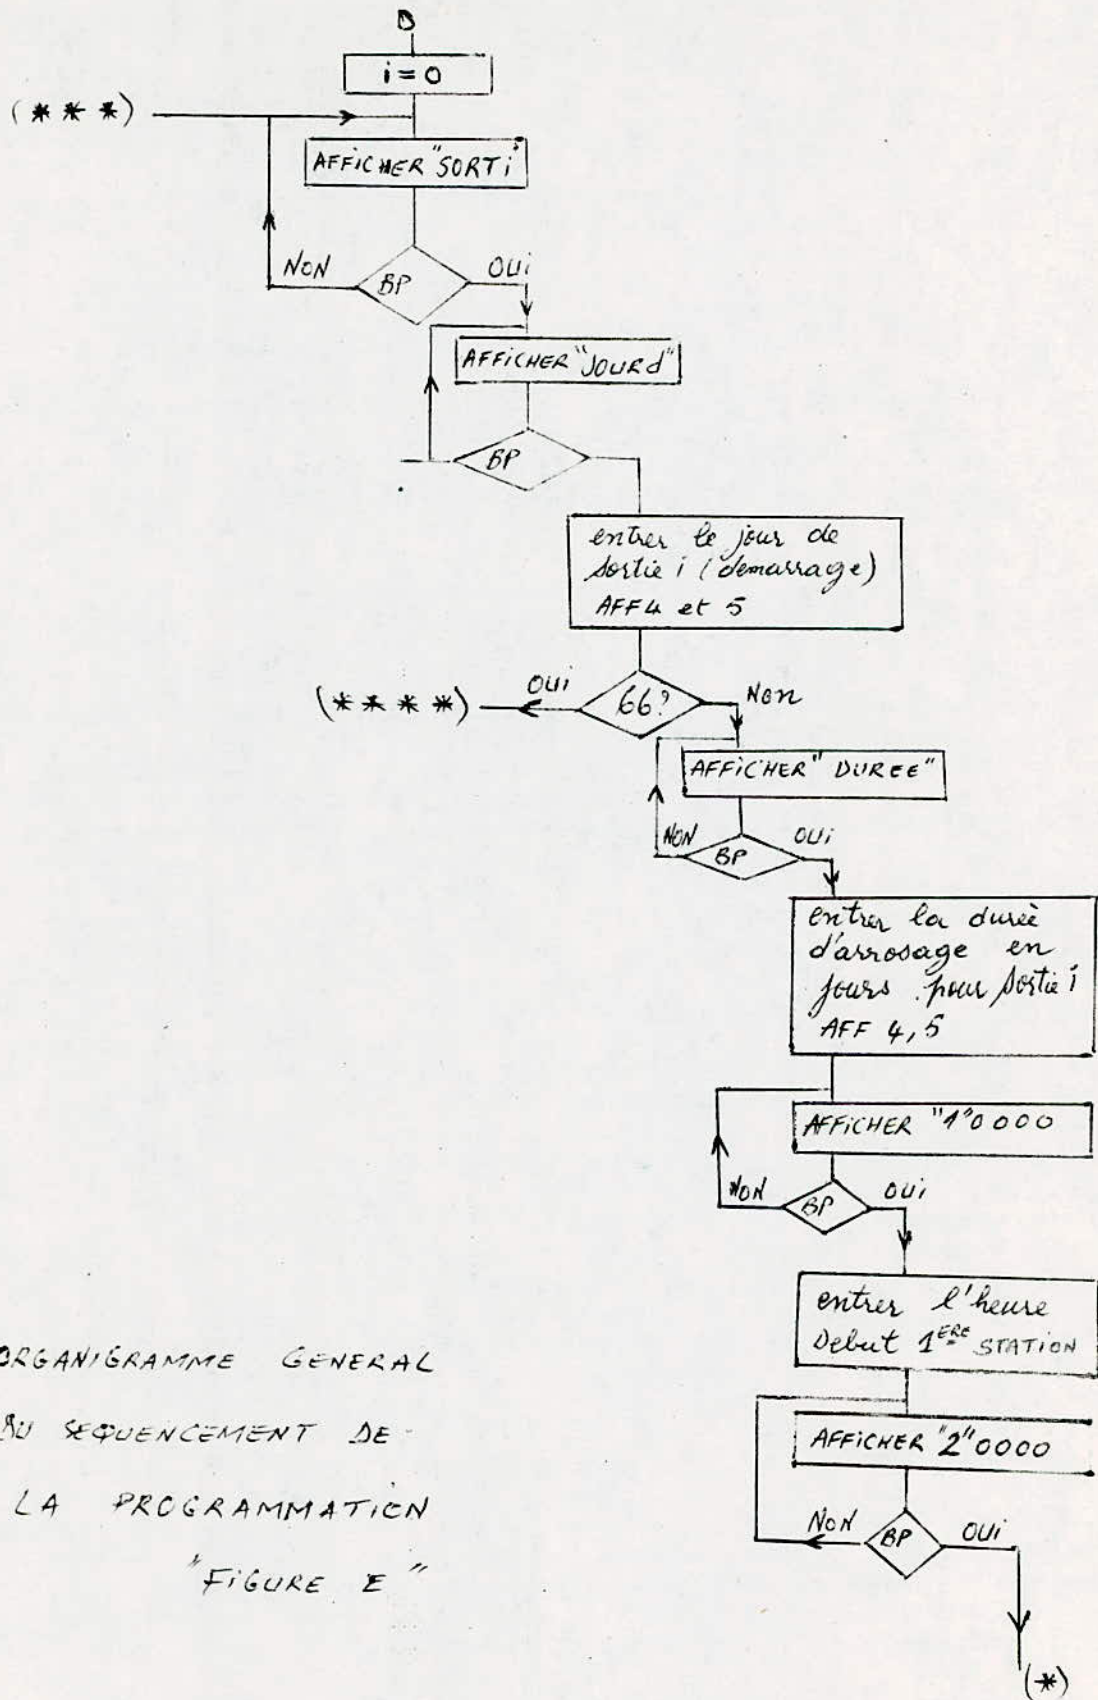 D
i = 0
(* * *)
AFFiCHER "SORTi"
NON
BP
OUi
AFFiCHER "JOURd"
BP
entrer le jour de
sortie i (demarrage)
AFF4 et 5
(* * * *)
OUi
66?
Non
AFFiCHER "DUREE"
NON
BP
OUi
entrer la durée
d'arrosage en
jours pour sortie i
AFF 4,5
AFFiCHER "1"0000
NON
BP
OUi
entrer l'heure
Debut 1ERE STATION
AFFiCHER "2"0000
NON
BP
OUi
(*)
ORGANiGRAMME GENERAL
DU SEQUENCEMENT DE
LA PROGRAMMATiON
"FiGURE E"